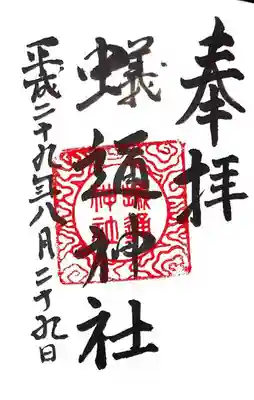 奉拝
蟻通神社
平成二十九年八月二十九日
蟻通
神社